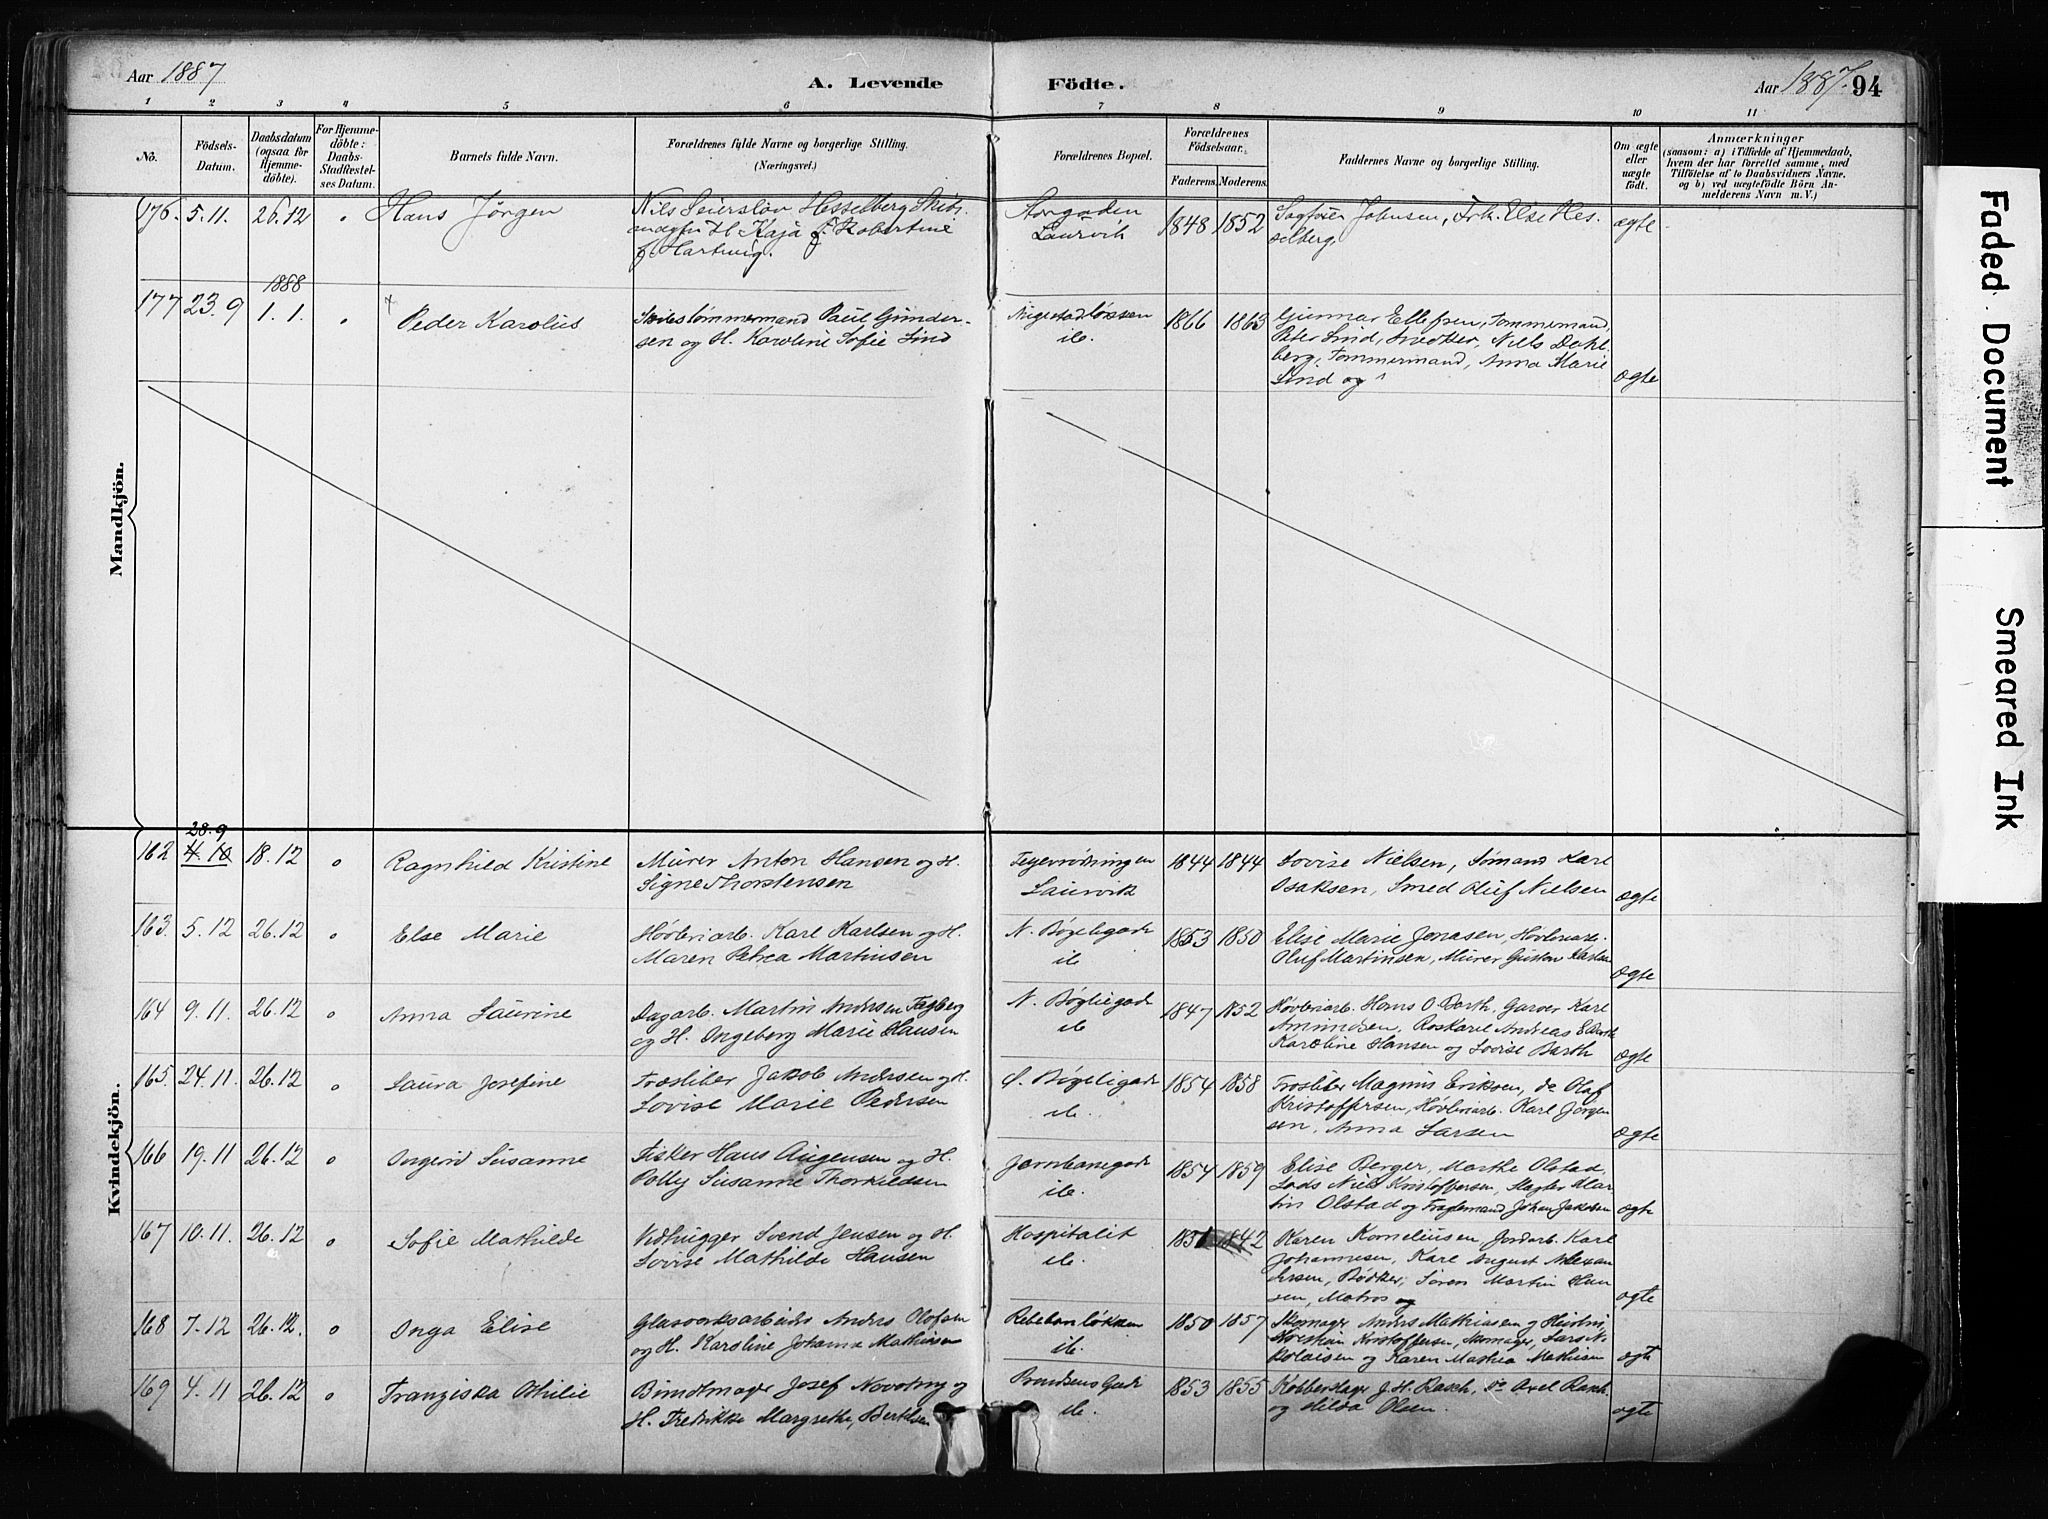 Aar 1887
A. Levende
Födte.
Aar 1887.
94
1 2 3 4 5 6 7 8 9 10 11
No.
Födsels-
Datum.
Daabsdatum
(ogsaa for
Hjemme-
döbte).
For Hjemme-
döbte:
Daabs-
Stadfæstel-
ses Datum.
Barnets fulde Navn.
Forældrenes fulde Navne og borgerlige Stilling.
(Næringsvei.)
Forældrenes Bopæl.
Forældrenes
Födselsaar.
Faderens. Moderens.
Faddernes Navne og borgerlige Stilling.
Om ægte
eller
uægte
födt.
Anmærkninger
(saasom: a) i Tilfælde af Hjemmedaab,
hvem der har forrettet samme, med
Tilföielse af to Daabsvidners Navne.
og b) ved uægtefödte Börn An-
melderens Navn m.V.)
Mandkjön.
176. 5.11. 26.12 Hans Jørgen
Nils Seiersløv Hesselberg Skibs
og H. Kaja Robertine
f. Hartwig.
Storgaden
Laurvik
1848 1852
Sagfører Johnsen, Frk. Else Hes-
selberg.
ægte
1888
177 23.9 1.1. Peder Karolus
Skibstømmermand Paul Gunder-
sen og H. Karoline Sofie Lind
ib.
1866 1863
Gunnar Ellefsen, Tømmermand,
Peter Lind, Snedker, Niels Dahl-
berg, Tømmermand, Anna Marie
Lind og
ægte
Kvindekjön.
28.9
162 4.10 18.12 Ragnhild Kristine
Murer Anton Hansen og H.
Signe Thorstensen
Laurvik
1844 1844
Lovise Nielsen, Sømand Karl
Isaksen, Smed Oluf Nielsen
ægte
163. 5.12 26.12 Else Marie
Høvleriarb. Karl Karlsen og H.
Maren Petrea Martinsen
N. Bøgeligade
ib
1853 1850
Elise Marie Jonasen, Høvleriarb.
Oluf Martinsen, Murer Gustav Karlsen
ægte
164 9.11. 26.12 Anna Laurine
Dagarb. Martin Andersen Fagberg
og H. Ingeborg Marie Hansen
N. Bøgligade
ib
1847 1852
Høvleriarb. Hans O. Barth, Garver Karl
Amundsen, Andreas Barth
Karoline Hansen og Lovise Barth
ægte
165. 24.11. 26.12 Laura Josefine
Træsliber Jakob Andersen og H.
Lovise Marie Pedersen
S. Bøgeligade
ib.
1854 1858
Træsliber Magnus Eriksen, do Olaf
Kristoffersen, Høvleriarb. Karl Jørgen
sen, Anna Larsen
ægte
166 19.11 26.12 Ingerid Susanne
Fisker Hans Augensen og H.
Polly Susanne Thorkildsen
Jernbanegade
ib.
1854 1859
Elise Berger, Marthe Olstad,
Lods Niels Kristoffersen, Slagter Mar
tin Olstad og Johan Jakobsen
ægte
167 10.11. 26.12 Sofie Mathilde
Vedhugger Svend Jensen og H.
Lovise Mathilde Hansen
Hospitalit
ib.
1851 1842
Karen Korneliussen, Jordarb. Karl
Johannesen, Karl August Alexan
dersen, Bødker, Søren Martin Han
sen, Matros og
ægte
168 7.12 26.12. Inga Elise
Glasværksarbeider Anders Olofsen
og H. Karoline Johanne Mathisen
Rebebaneløkken
ib.
1850 1857
Skomager Anders Mathiasen og Hustru,
Kristian Kristoffersen, Skomager, Lars N
kolaisen og Karen Mathea Mathisen
ægte
169 4.11 26.12 Franziska Othilie
Buntmager Josef Novotny og
H. Fredrikke Margrethe, Berthelsen
ib.
1853 1855
Kobberslager J. H. Rasch, do Axel Rasch.
og Hilda Olsen.
ægte
Faded Document
Smeared Ink